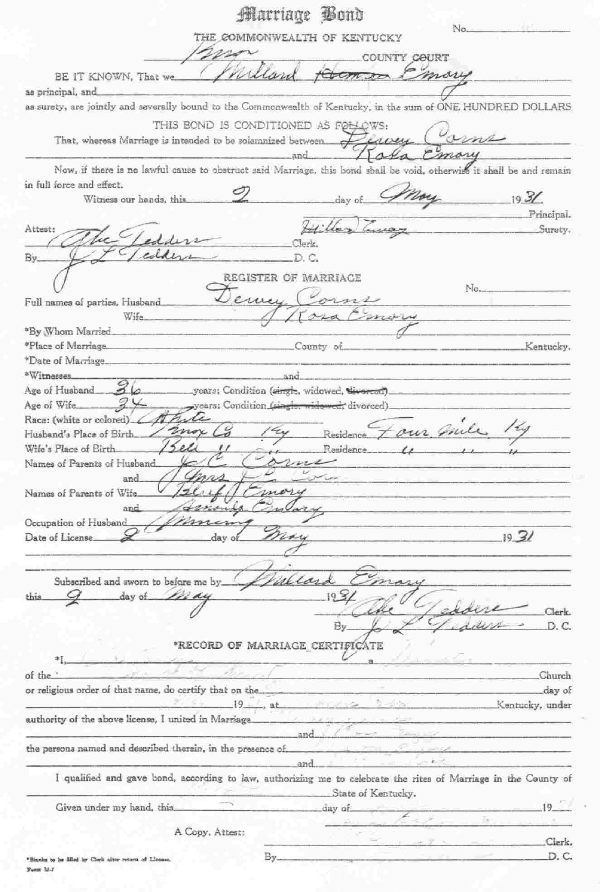 Marriage Bond
No.
THE COMMONWEALTH OF KENTUCKY
Knox COUNTY COURT
BE IT KNOWN, That we Millard Emory
as principal, and
as surety, are jointly and severally bound to the Commonwealth of Kentucky, in the sum of ONE HUNDRED DOLLARS
THIS BOND IS CONDITIONED AS FOLLOWS:
That, whereas Marriage is intended to be solemnized between Dewey Corns
and Rosa Emory
Now, if there is no lawful cause to obstruct said Marriage, this bond shall be void, otherwise it shall be and remain
in full force and effect.
Witness our hands, this 2 day of May 1931.
Principal.
Attest: Millard Emory Surety.
Abe Tedders Clerk.
By J L Tedders D. C.
REGISTER OF MARRIAGE
No.
Full names of parties, Husband Dewey Corns
Wife Rosa Emory
*By Whom Married
*Place of Marriage County of Kentucky.
*Date of Marriage
*Witnesses and
Age of Husband 36 years; Condition (single, widowed, divorced)
Age of Wife 34 years; Condition (single, widowed, divorced)
Race: (white or colored) White
Husband's Place of Birth Knox Co Ky Residence Four Mile Ky
Wife's Place of Birth Bell " " Residence " " "
Names of Parents of Husband J C Corns
and Mrs J C Corns
Names of Parents of Wife Emory
and Emory
Occupation of Husband Mining
Date of License 2 day of May 1931
Subscribed and sworn to before me by Millard Emory
this 2 day of May 1931
Abe Tedders Clerk.
By J L Tedders D. C.
*RECORD OF MARRIAGE CERTIFICATE
*I, a
of the Church
or religious order of that name, do certify that on the day of
19 , at Kentucky, under
authority of the above license, I united in Marriage
and
the persons named and described therein, in the presence of
and
I qualified and gave bond, according to law, authorizing me to celebrate the rites of Marriage in the County of
State of Kentucky.
Given under my hand, this day of 19
A Copy, Attest:
Clerk.
*Blanks to be filled by Clerk after return of License. By D. C.
Form M-1